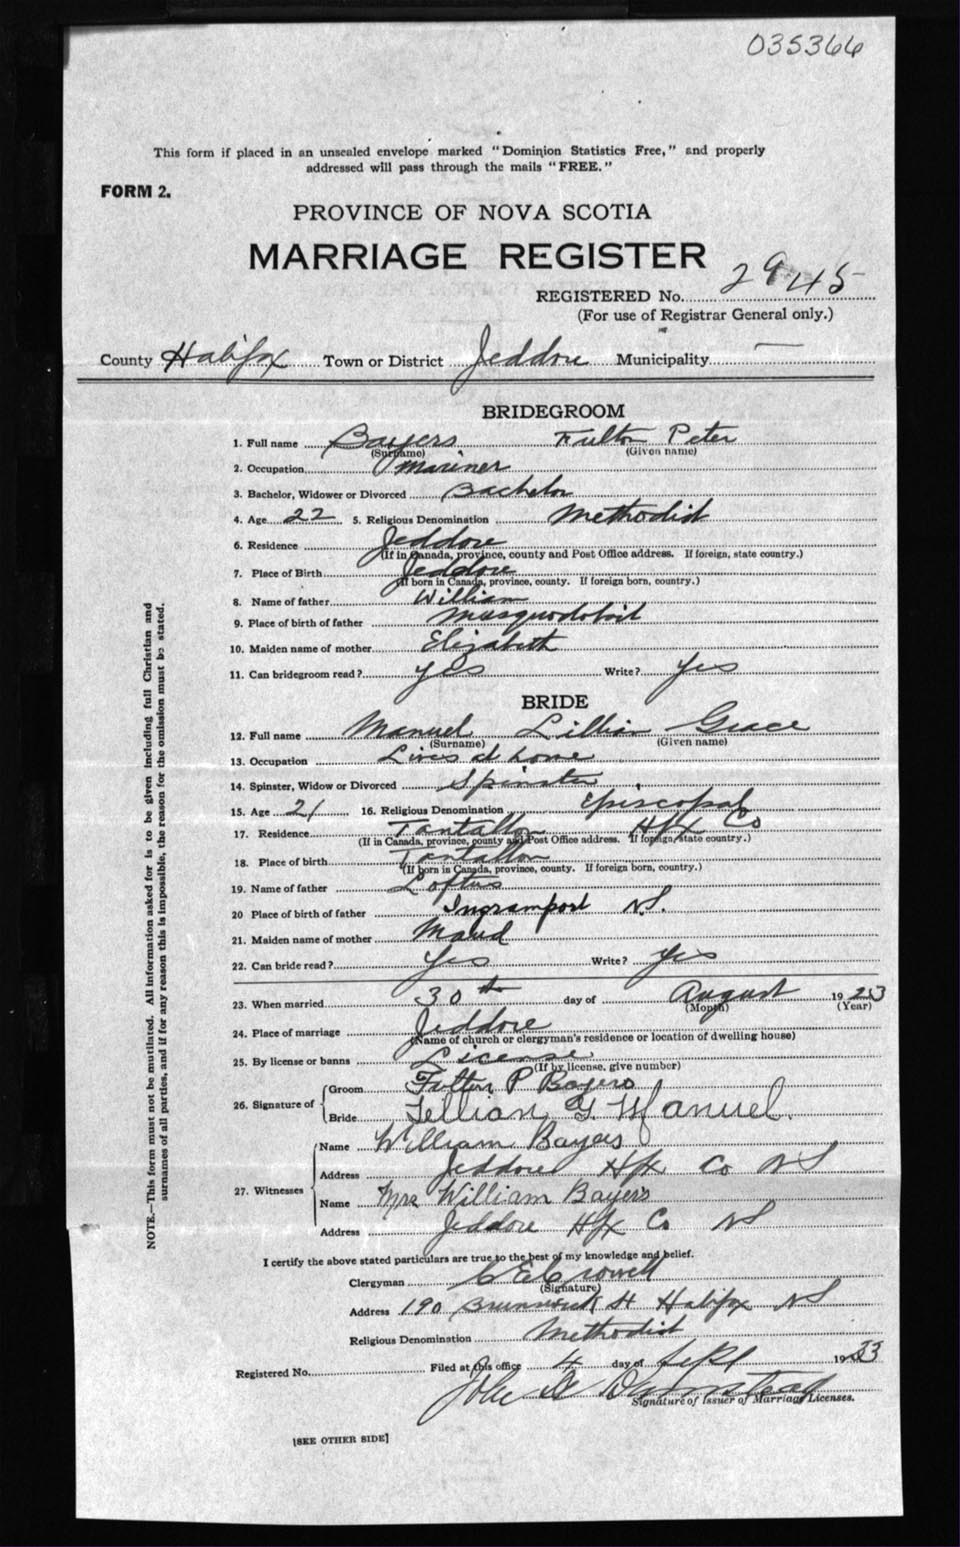 035366
This form if placed in an unsealed envelope marked "Dominion Statistics Free," and properly
addressed will pass through the mails "FREE."
FORM 2.
PROVINCE OF NOVA SCOTIA
MARRIAGE REGISTER
REGISTERED No. 2945
(For use of Registrar General only.)
County Halifax Town or District Jeddore Municipality —
BRIDEGROOM
1. Full name Bayers Fulton Peter
(Surname) (Given name)
2. Occupation Mariner
3. Bachelor, Widower or Divorced Bachelor
4. Age 22 5. Religious Denomination Methodist
6. Residence Jeddore
(If in Canada, province, county and Post Office address. If foreign, state country.)
7. Place of Birth Jeddore
(If born in Canada, province, county. If foreign born, country.)
8. Name of father William
9. Place of birth of father Musquodoboit
10. Maiden name of mother Elizabeth
11. Can bridegroom read? yes Write? yes
BRIDE
12. Full name Manuel Lillian Grace
(Surname) (Given name)
13. Occupation Lives at home
14. Spinster, Widow or Divorced Spinster
15. Age 21 16. Religious Denomination Episcopal
17. Residence Tantallon Hfx Co
(If in Canada, province, county and Post Office address. If foreign, state country.)
18. Place of birth Tantallon
(If born in Canada, province, county. If foreign born, country.)
19. Name of father Loftus
20 Place of birth of father Ingramport N.S.
21. Maiden name of mother Maud
22. Can bride read? Yes Write? Yes
23. When married 30th day of August 1923
(Month) (Year)
24. Place of marriage Jeddore
(Name of church or clergyman's residence or location of dwelling house)
25. By license or banns License
(If by license, give number)
26. Signature of
Groom Fulton P Bayers
Bride Lillian G Manuel.
27. Witnesses
Name William Bayers
Address Jeddore Hfx Co NS
Name Mrs William Bayers
Address Jeddore Hfx Co NS
I certify the above stated particulars are true to the best of my knowledge and belief.
Clergyman C E Crowell
(Signature)
Address 190 Brunswick St Halifax NS
Religious Denomination Methodist
Registered No. Filed at this office 4 day of Sept 1923
John
Signature of Issuer of Marriage Licenses.
[SEE OTHER SIDE]
NOTE.—This form must not be mutilated. All information asked for is to be given including full Christian and
surnames of all parties, and if for any reason this is impossible, the reason for the omission must be stated.